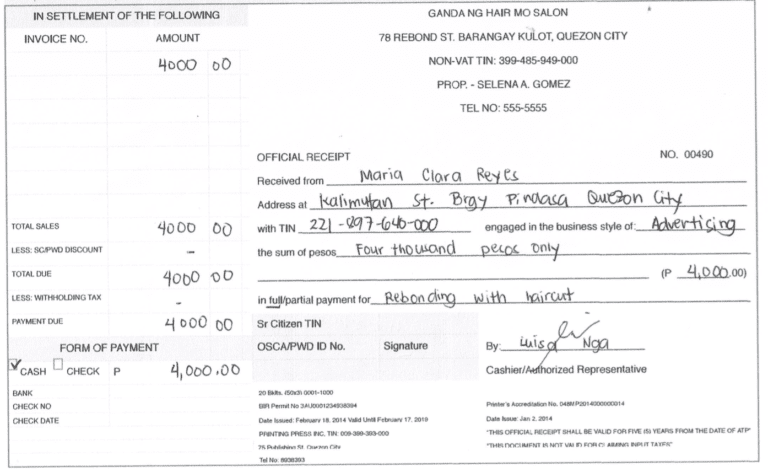 IN SETTLEMENT OF THE FOLLOWING
INVOICE NO. AMOUNT
4000 00
TOTAL SALES 4000 00
LESS: SC/PWD DISCOUNT -
TOTAL DUE 4000 00
LESS: WITHHOLDING TAX -
PAYMENT DUE 4000 00
FORM OF PAYMENT
CASH CHECK P 4,000.00
BANK
CHECK NO
CHECK DATE
GANDA NG HAIR MO SALON
78 REBOND ST. BARANGAY KULOT, QUEZON CITY
NON-VAT TIN: 399-485-949-000
PROP. - SELENA A. GOMEZ
TEL NO: 555-5555
OFFICIAL RECEIPT NO. 00490
Received from Maria Clara Reyes
Address at Kalimutan St. Brgy Pindasa Quezon City
with TIN 221-897-640-000 engaged in the business style of: Advertising
the sum of pesos Four thousand pesos only
(P 4,000.00)
in full/partial payment for Rebonding with haircut
Sr Citizen TIN
OSCA/PWD ID No. Signature
By: Luisa Nga
Cashier/Authorized Representative
20 Bklts. (50x3) 0001-1000
BIR Permit No 3AU0001234938394
Date Issued: February 18, 2014 Valid Until February 17, 2019
PRINTING PRESS INC. TIN: 009-399-393-000
75 Publishing St. Quezon City
Tel No: 8938393
Printer's Accreditation No. 048MP20149000000014
Date Issue: Jan 2, 2014
"THIS OFFICIAL RECEIPT SHALL BE VALID FOR FIVE (5) YEARS FROM THE DATE OF ATP"
"THIS DOCUMENT IS NOT VALID FOR CLAIMING INPUT TAXES"